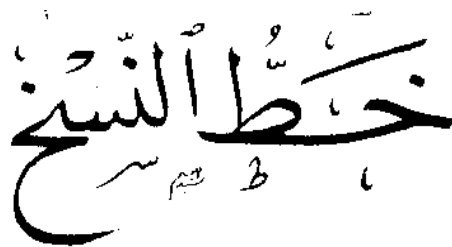 خَطُّ النَّسْخِ